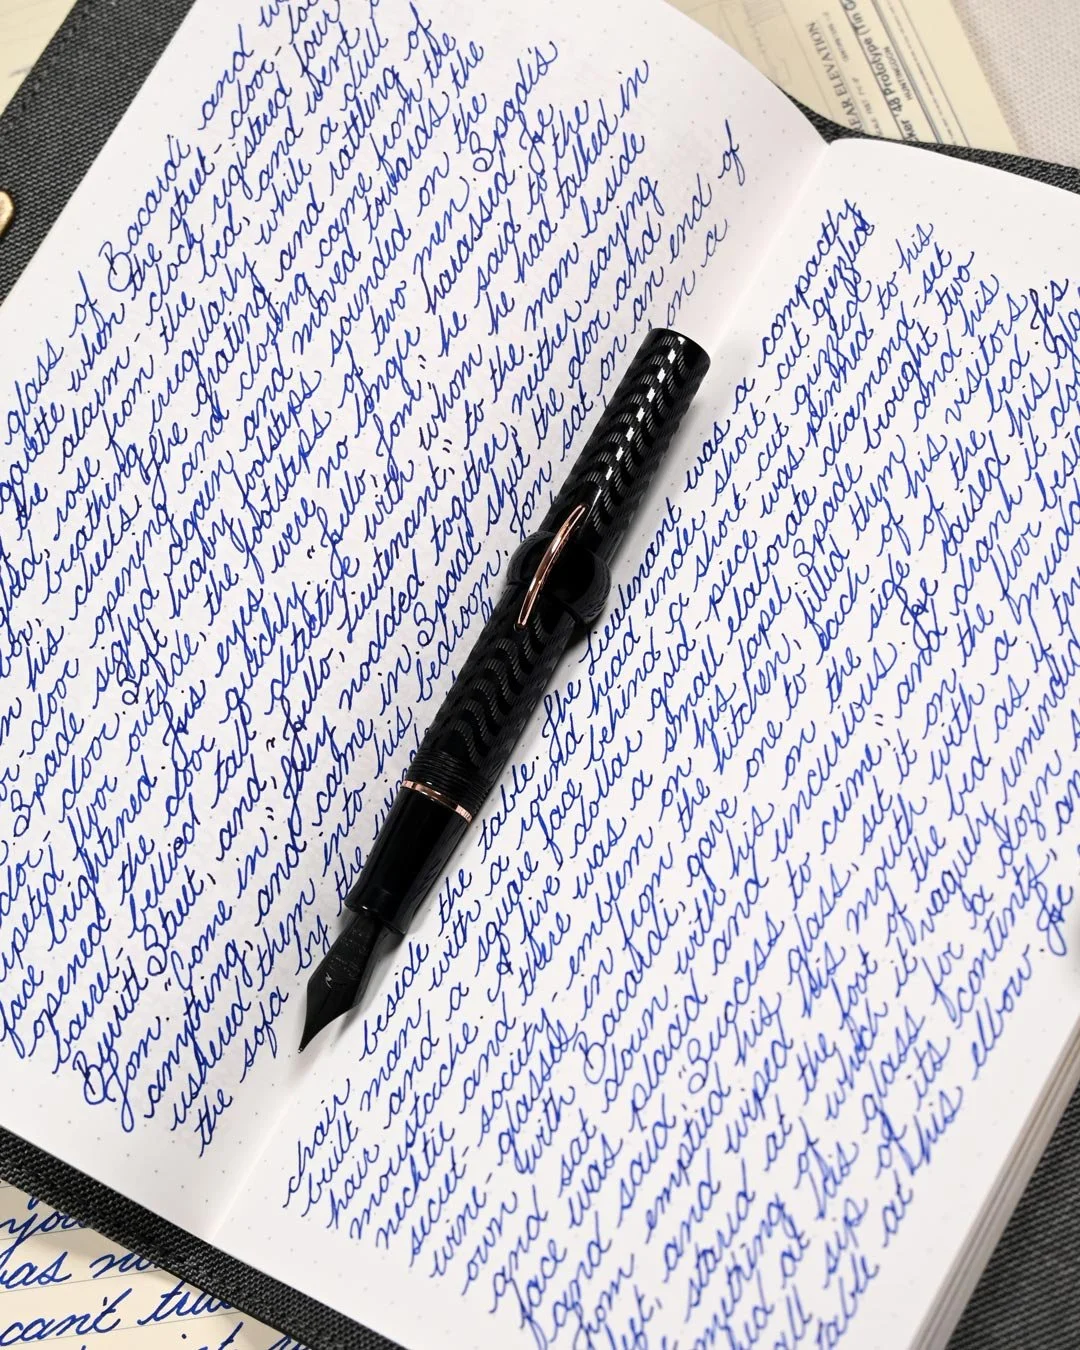 glass of Bacardi and
garette when the street-door-
the alarm-clock registered four
ghed, rose from the bed, and went
box, breathing irregularly while a dull
in his cheeks. The grating and rattling of
or-door opening and closing came from the
Spade sighed again and moved towards the
idor-door. Soft heavy footsteps sounded on the
rpeted floor outside, the footsteps of two men. Spade's
face brightened. His eyes were no longer harassed. He
opened the door quickly. "Hello, Tom," he said to the
barrel-bellied tall detective with whom he had talked in
Burritt Street, and, "Hello, Lieutenant," to the man beside
Tom. "Come in." They nodded together, neither saying
anything, and came in. Spade shut the door and
ushered them into his bedroom. Tom sat on an end of
the sofa by the on a
chair beside the table. The Lieutenant was a compactly
built man with a round head under short-cut grizzled
hair and a square face behind a short-cut grizzled
moustache. A five dollar gold-piece was pinned to his
necktie and there was a small elaborate diamond-set
secret-society-emblem on his lapel. Spade brought two
wine-glasses in from the kitchen, filled them and his
own with Bacardi, gave one to each of his visitors
and sat down with his on the side of the bed. His
face was placid and uncurious. He raised his gla
and said, "Success to crime," and drank it dow
Tom emptied his glass, set it on the floor besid
feet, and wiped his mouth with a mudd
stared at the foot of the bed as if try
mething of which it vaguely reminded
ked at his glass for a dozen s
all sip of its contents, an
table at his elbow. He
REAR ELEVATION
48 Prototype (Tin G
HUNTINGDON
you
was no
can't tru